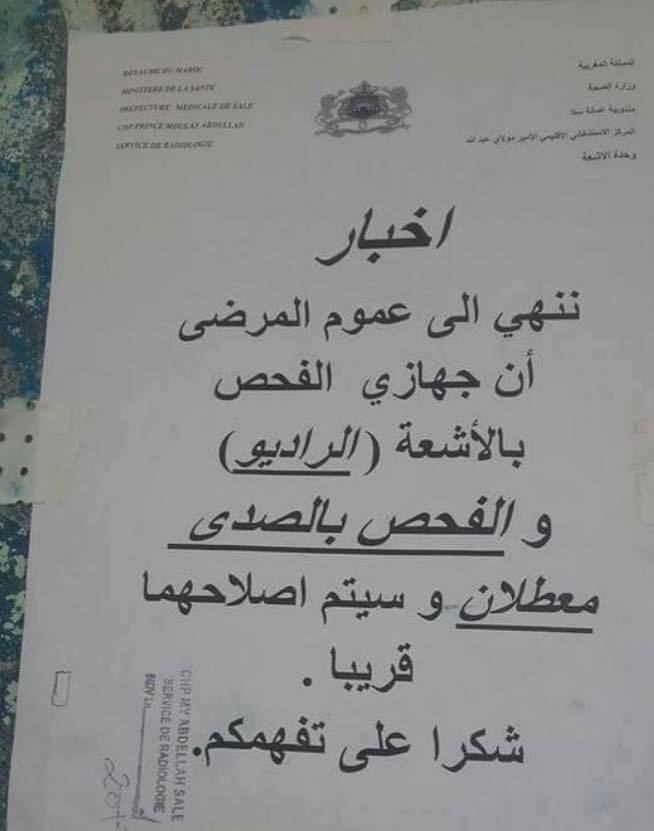 ROYAUME DU MAROC
MINISTERE DE LA SANTE
PREFECTURE MEDICALE DE SALE
CHP PRINCE MOULAY ABDELLAH
SERVICE DE RADIOLOGIE
المملكة المغربية
وزارة الصحة
مندوبية عمالة سلا
المركز الاستشفائي الإقليمي الامير مولاي عبد الله
وحدة الاشعة
اخبار
ننهي الى عموم المرضى
أن جهازي الفحص
بالأشعة (الراديو)
و الفحص بالصدى
معطلان و سيتم اصلاحهما
قريبا .
شكرا على تفهمكم.
CHP MY ABDELLAH SALE
SERVICE DE RADIOLOGIE